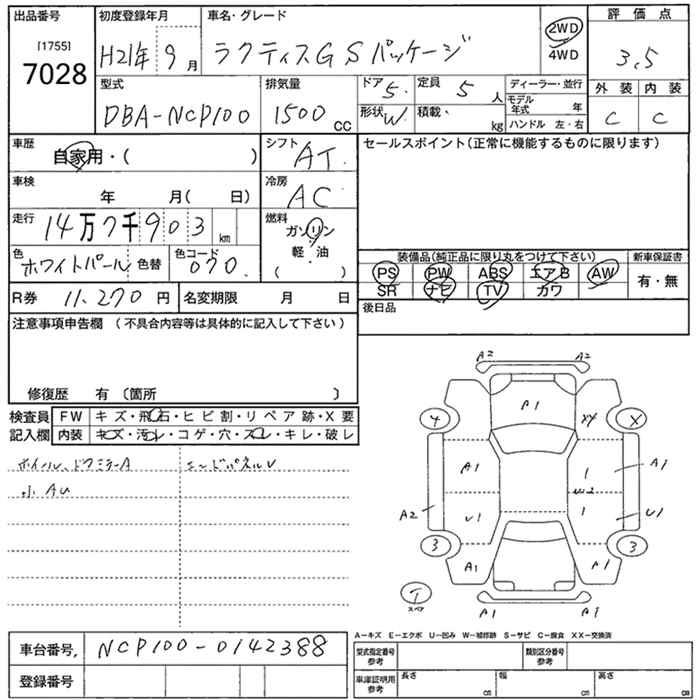 出品番号 初度登録年月 車名・グレード 評価点
[1755] 2WD
7028 H21年 9月 ラクティスGSパッケージ 4WD 3.5
型式 排気量 ドア 5. 定員 5人 ディーラー・並行 外装 内装
DBA-NCP100 1500cc 形状 W. 積載・ kg モデル年式 年 C C
ハンドル 左・右
車歴 自家用・( ) シフト AT. セールスポイント(正常に機能するものに限ります)
車検 年 月( 日) 冷房 AC
走行 14万7千903km 燃料 ガソリン
軽・油
( )
色 ホワイトパール 色替 色コード 070. 装備品(純正品に限り丸をつけて下さい) 新車保証書
PS PW ABS エアB AW 有・無
R券 11,270円 名変期限 月 日 SR ナビ TV カワ
注意事項申告欄(不具合内容等は具体的に記入して下さい) 後日品
修復歴 有 〔箇所 〕
検査員 FW キズ・飛石・ヒビ割・リペア跡・X要
記入欄 内装 キズ・汚レ・コゲ・穴・スレ・キレ・破レ
ホイール、ドアミラーA エンドパネルU
小AU
A2 A2
A1
4 XX X
A1 1 A1
U2
A2 U1 1 U1
3 A1 A1 3
T
スペア
A1 A1
A―キズ E―エクボ U―凹み W―補修跡 S―サビ C―腐食 XX―交換済
車台番号. NCP100-0142388 型式指定番号 参考 類別区分番号 参考
登録番号 車庫証明用 参考 長さ cm 幅 cm 高さ cm